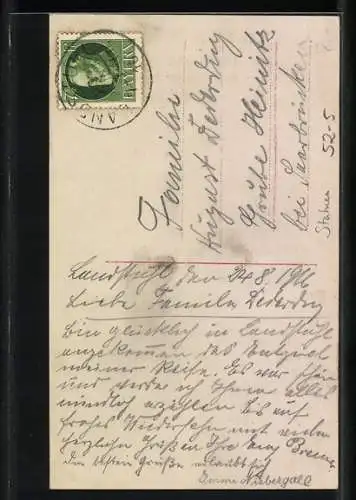 BAYERN
Familie
August Dederdig
Grube Heinitz
bei Saarbrücken
Statuen
52-5
Landstuhl den 24 8. 1916
Liebe Familie Dederdig
Bin glücklich in Landstuhl
angekommen das Endziel
meiner Reise. Es war schön
und werde ich Ihnen alles
mündlich erzählen bis auf
frohes Wiedersehn mit vielen
herzlichen Grüßen Ihr
Die besten Grüße erlaubt sich
Emma Niebergall